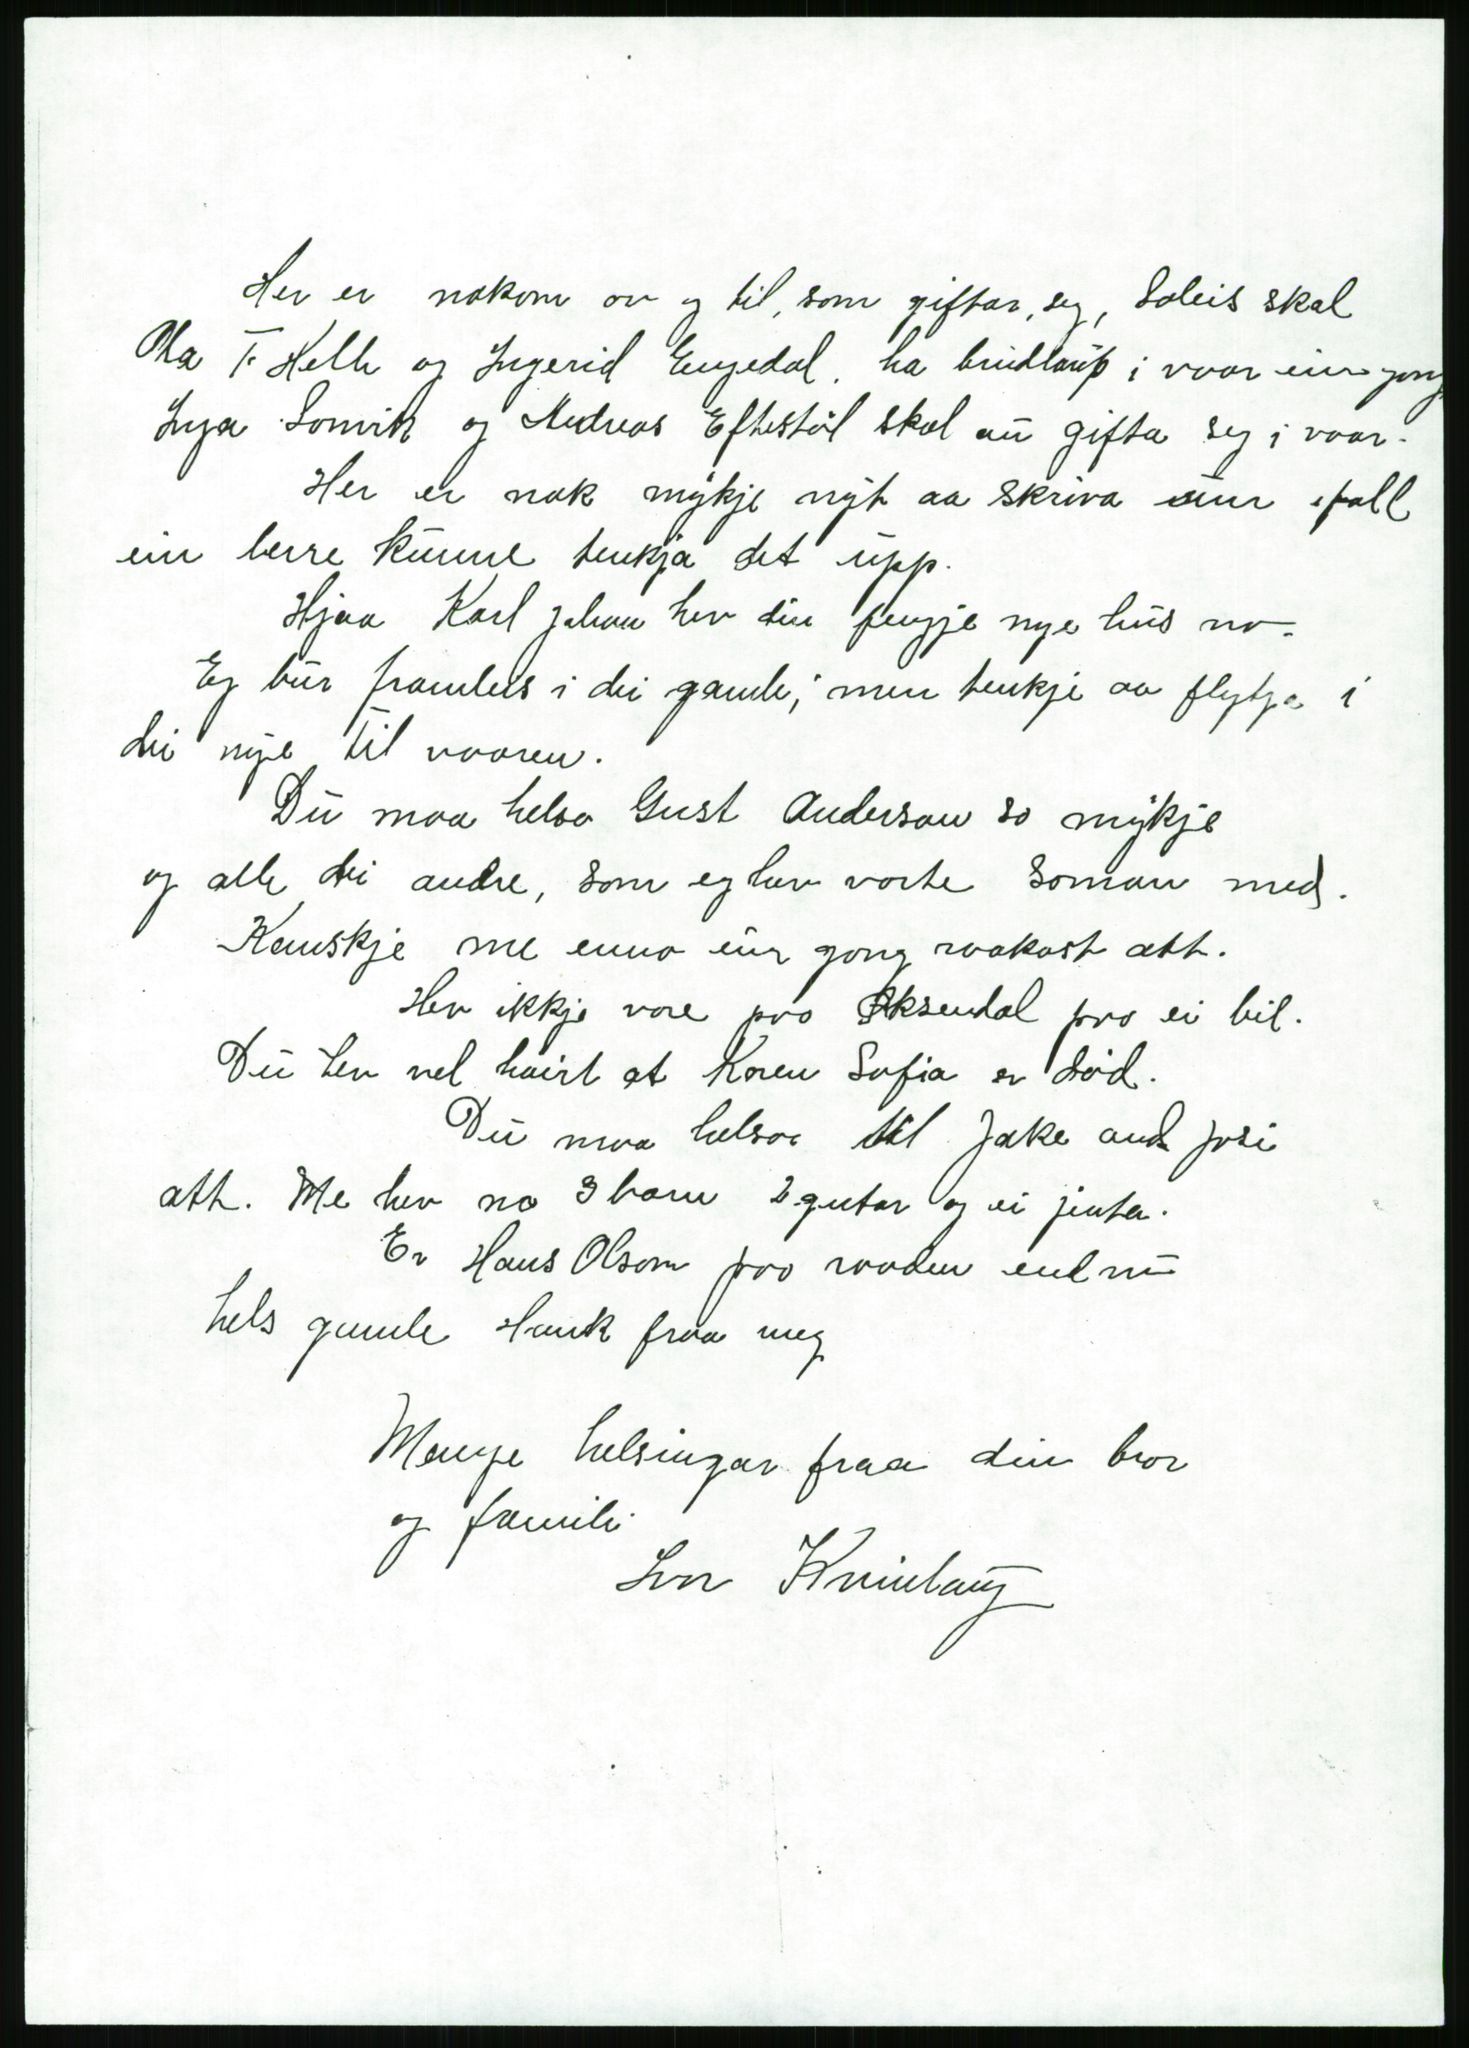 Her er nokom ov og til, som giftar, seg, Soleis skal
Ola T. Helle og Ingerid Eugedal. ha brudlaup i vaar ein gong
Inga Lomvik og Andreas Eftestöl skal au gifta seg i vaar.
Her er nok mykje nyt aa skriva um fall
ein berre kunne tenkja det upp.
Hjaa Karl Johan hev dei fengje nye hus no.
Eg bur framleis i dei gamle, men tenkje aa flytja i
dei nye til vaaren.
Du maa helsa Gust Anderson so mykje
og alle dei andre, som eg hev vorte saman med.
Kanskje me enno ein gong raakast att.
Hev ikkje vore paa Øksendal paa ei bil.
Du hev vel höirt at Karen Sofia er död.
Du maa helsa til Jake and Josi
att. Me hev no 3 barn 2 gutar og ei jenta.
Er Hans Olsom paa raaden end nu
hels gamle Hank fraa meg
Mange helsingar fraa din bror
og famili
Ivar Kvinlaug